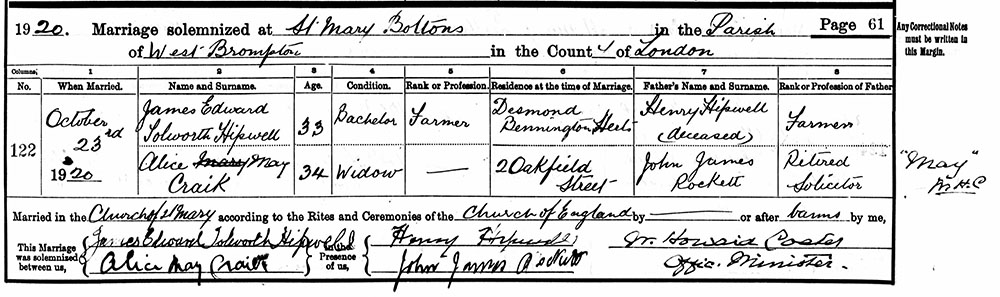 1920. Marriage solemnized at St Mary Boltons in the Parish Page 61
of West Brompton in the County of London
Any Correctional Notes must be written in this Margin.
Columns: 1 2 3 4 5 6 7 8
No. When Married. Name and Surname. Age. Condition. Rank or Profession. Residence at the time of Marriage. Father's Name and Surname. Rank or Profession of Father
122 October 23rd 1920 James Edward Tolworth Hipwell 33 Bachelor Farmer Desmond Bennington Herts Henry Hipwell (deceased) Farmer
Alice Mary May Craik 34 Widow — 2 Oakfield Street John James Rockett Retired Solicitor
"May" W.H.C
Married in the Church of St Mary according to the Rites and Ceremonies of the Church of England by — or after banns by me,
This Marriage was solemnized between us, James Edward Tolworth Hipwell in the Presence of us, Henry W. Howard
Alice May Craik John James Offic. Minister.